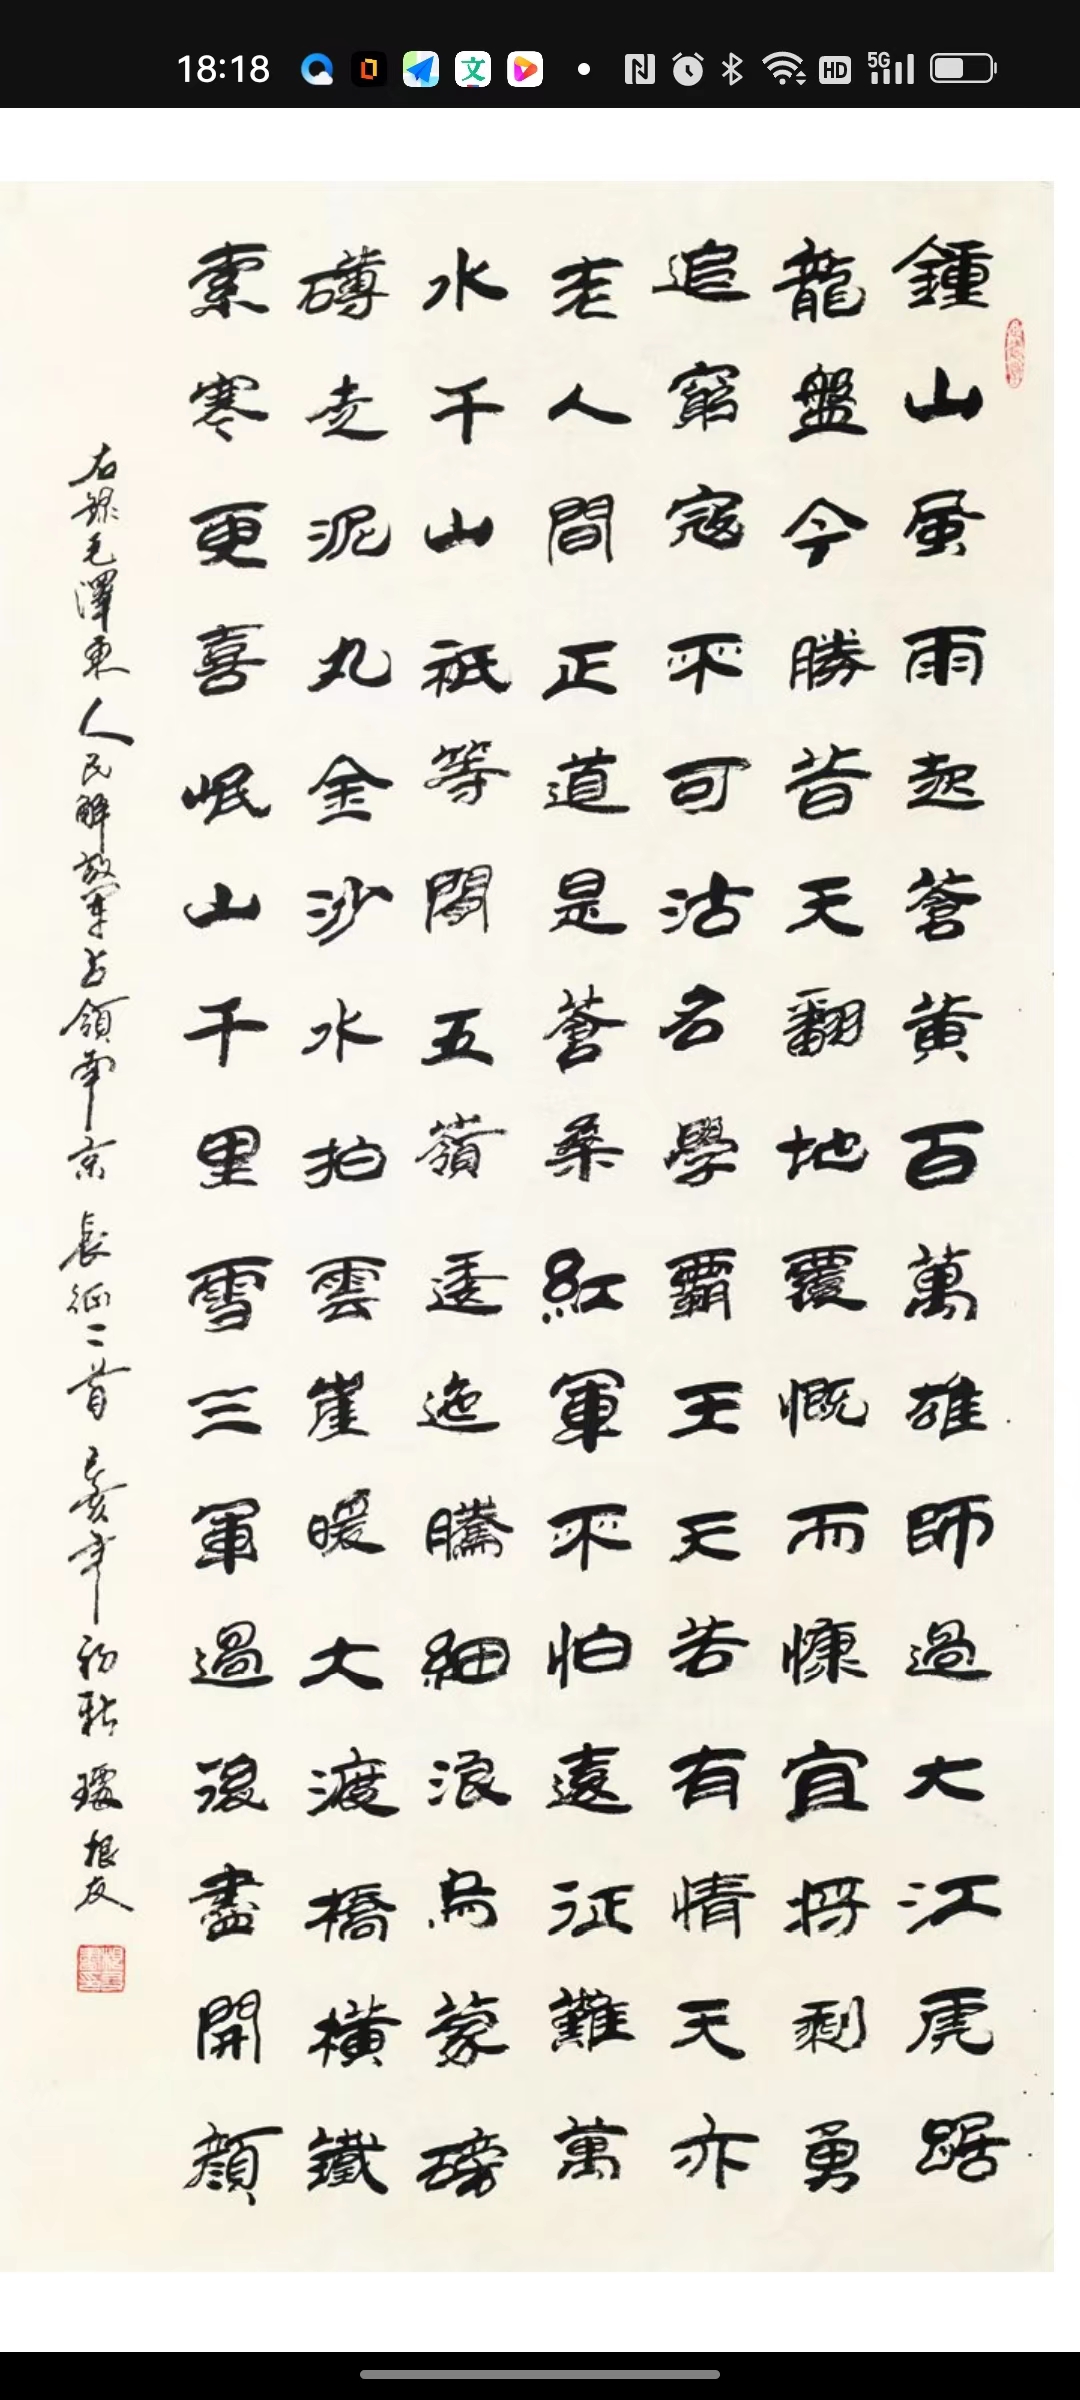 18:18
HD
5G
鍾山風雨起蒼黃百萬雄師過大江虎踞
龍盤今勝昔天翻地覆慨而慷宜将剩勇
追窮寇不可沽名學霸王天若有情天亦
老人間正道是蒼桑紅軍不怕遠征難萬
水千山衹等閑五嶺逶迤騰細浪烏蒙磅
礴走泥丸金沙水拍雲崖暖大渡橋橫鐵
索寒更喜岷山千里雪三軍過後盡開顏
右錄毛澤東人民解放軍占領南京長征二首己亥年初秋根友